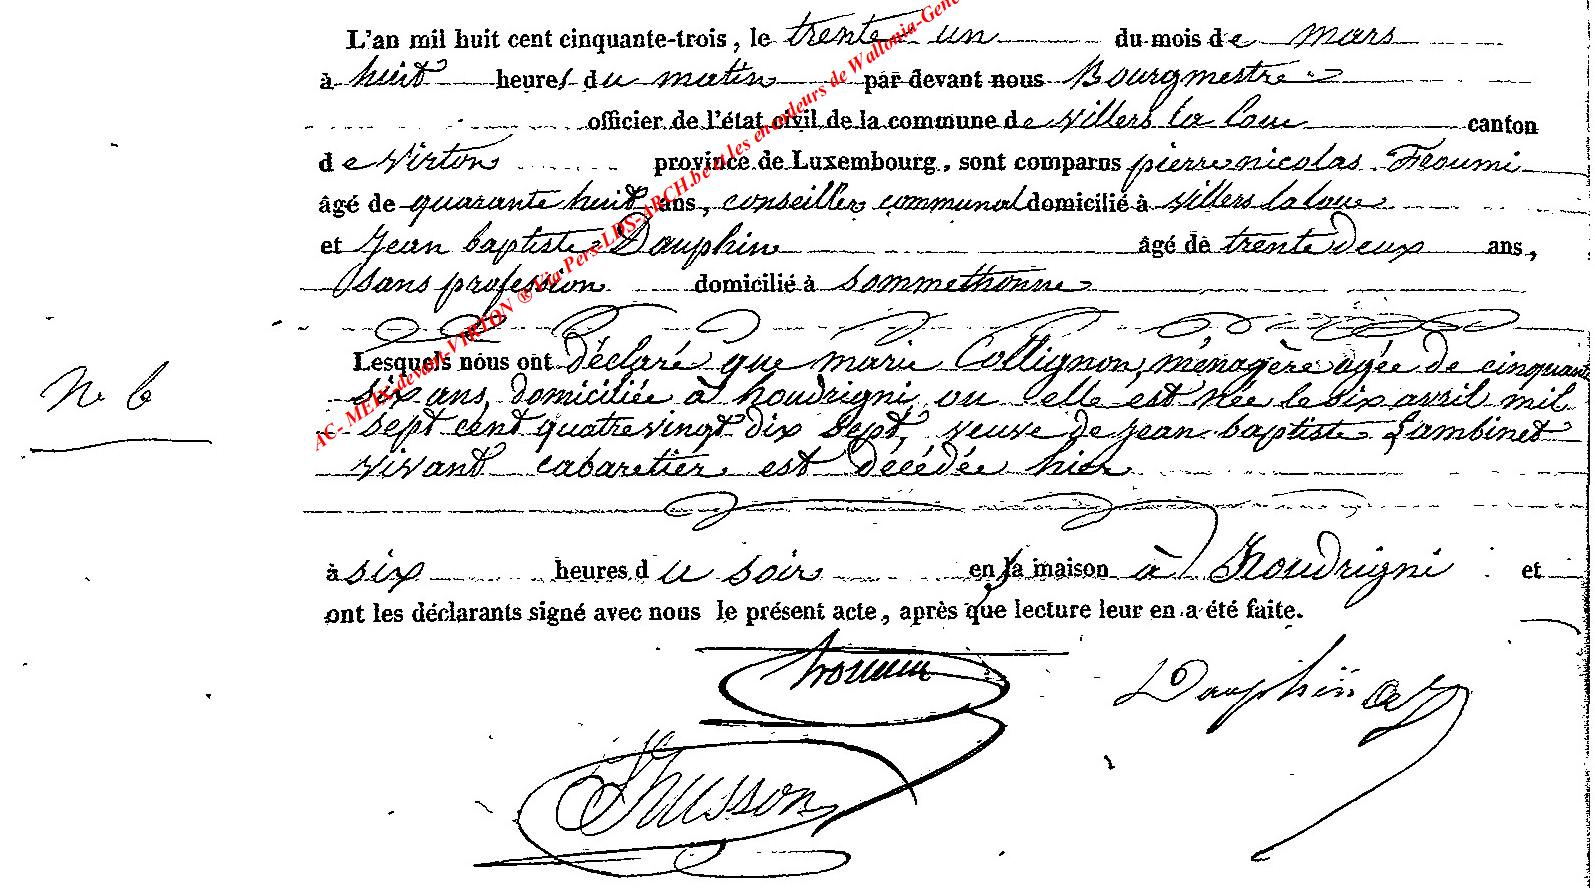 L'an mil huit cent cinquante-trois, le trente un du mois de mars
à huit heures du matin par devant nous Bourgmestre
officier de l'état civil de la commune de villers la loue canton
de virton province de Luxembourg, sont comparus pierre nicolas
âgé de quarante huit ans, conseiller communal domicilié à villers la loue
et Jean baptiste Dauphin âgé de trente deux ans,
sans profession domicilié à sommethonne
Lesquels nous ont déclaré que marie Collignon, ménagère agée de cinquante
N. 6
six ans, domiciliée à houdrigni ou elle est née le six avril mil
sept cent quatre vingt dix sept, veuve de jean baptiste Lambinet
vivant cabaretier est décédée hier
à six heures du soir en la maison à houdrigni et
ont les déclarants signé avec nous le présent acte, après que lecture leur en a été faite.
Dauphin
Husson
AC- MEIX-devant-VIRTON ® Via Pers-LDS-ARCH.be et les encodeurs de Wallonia-Gene